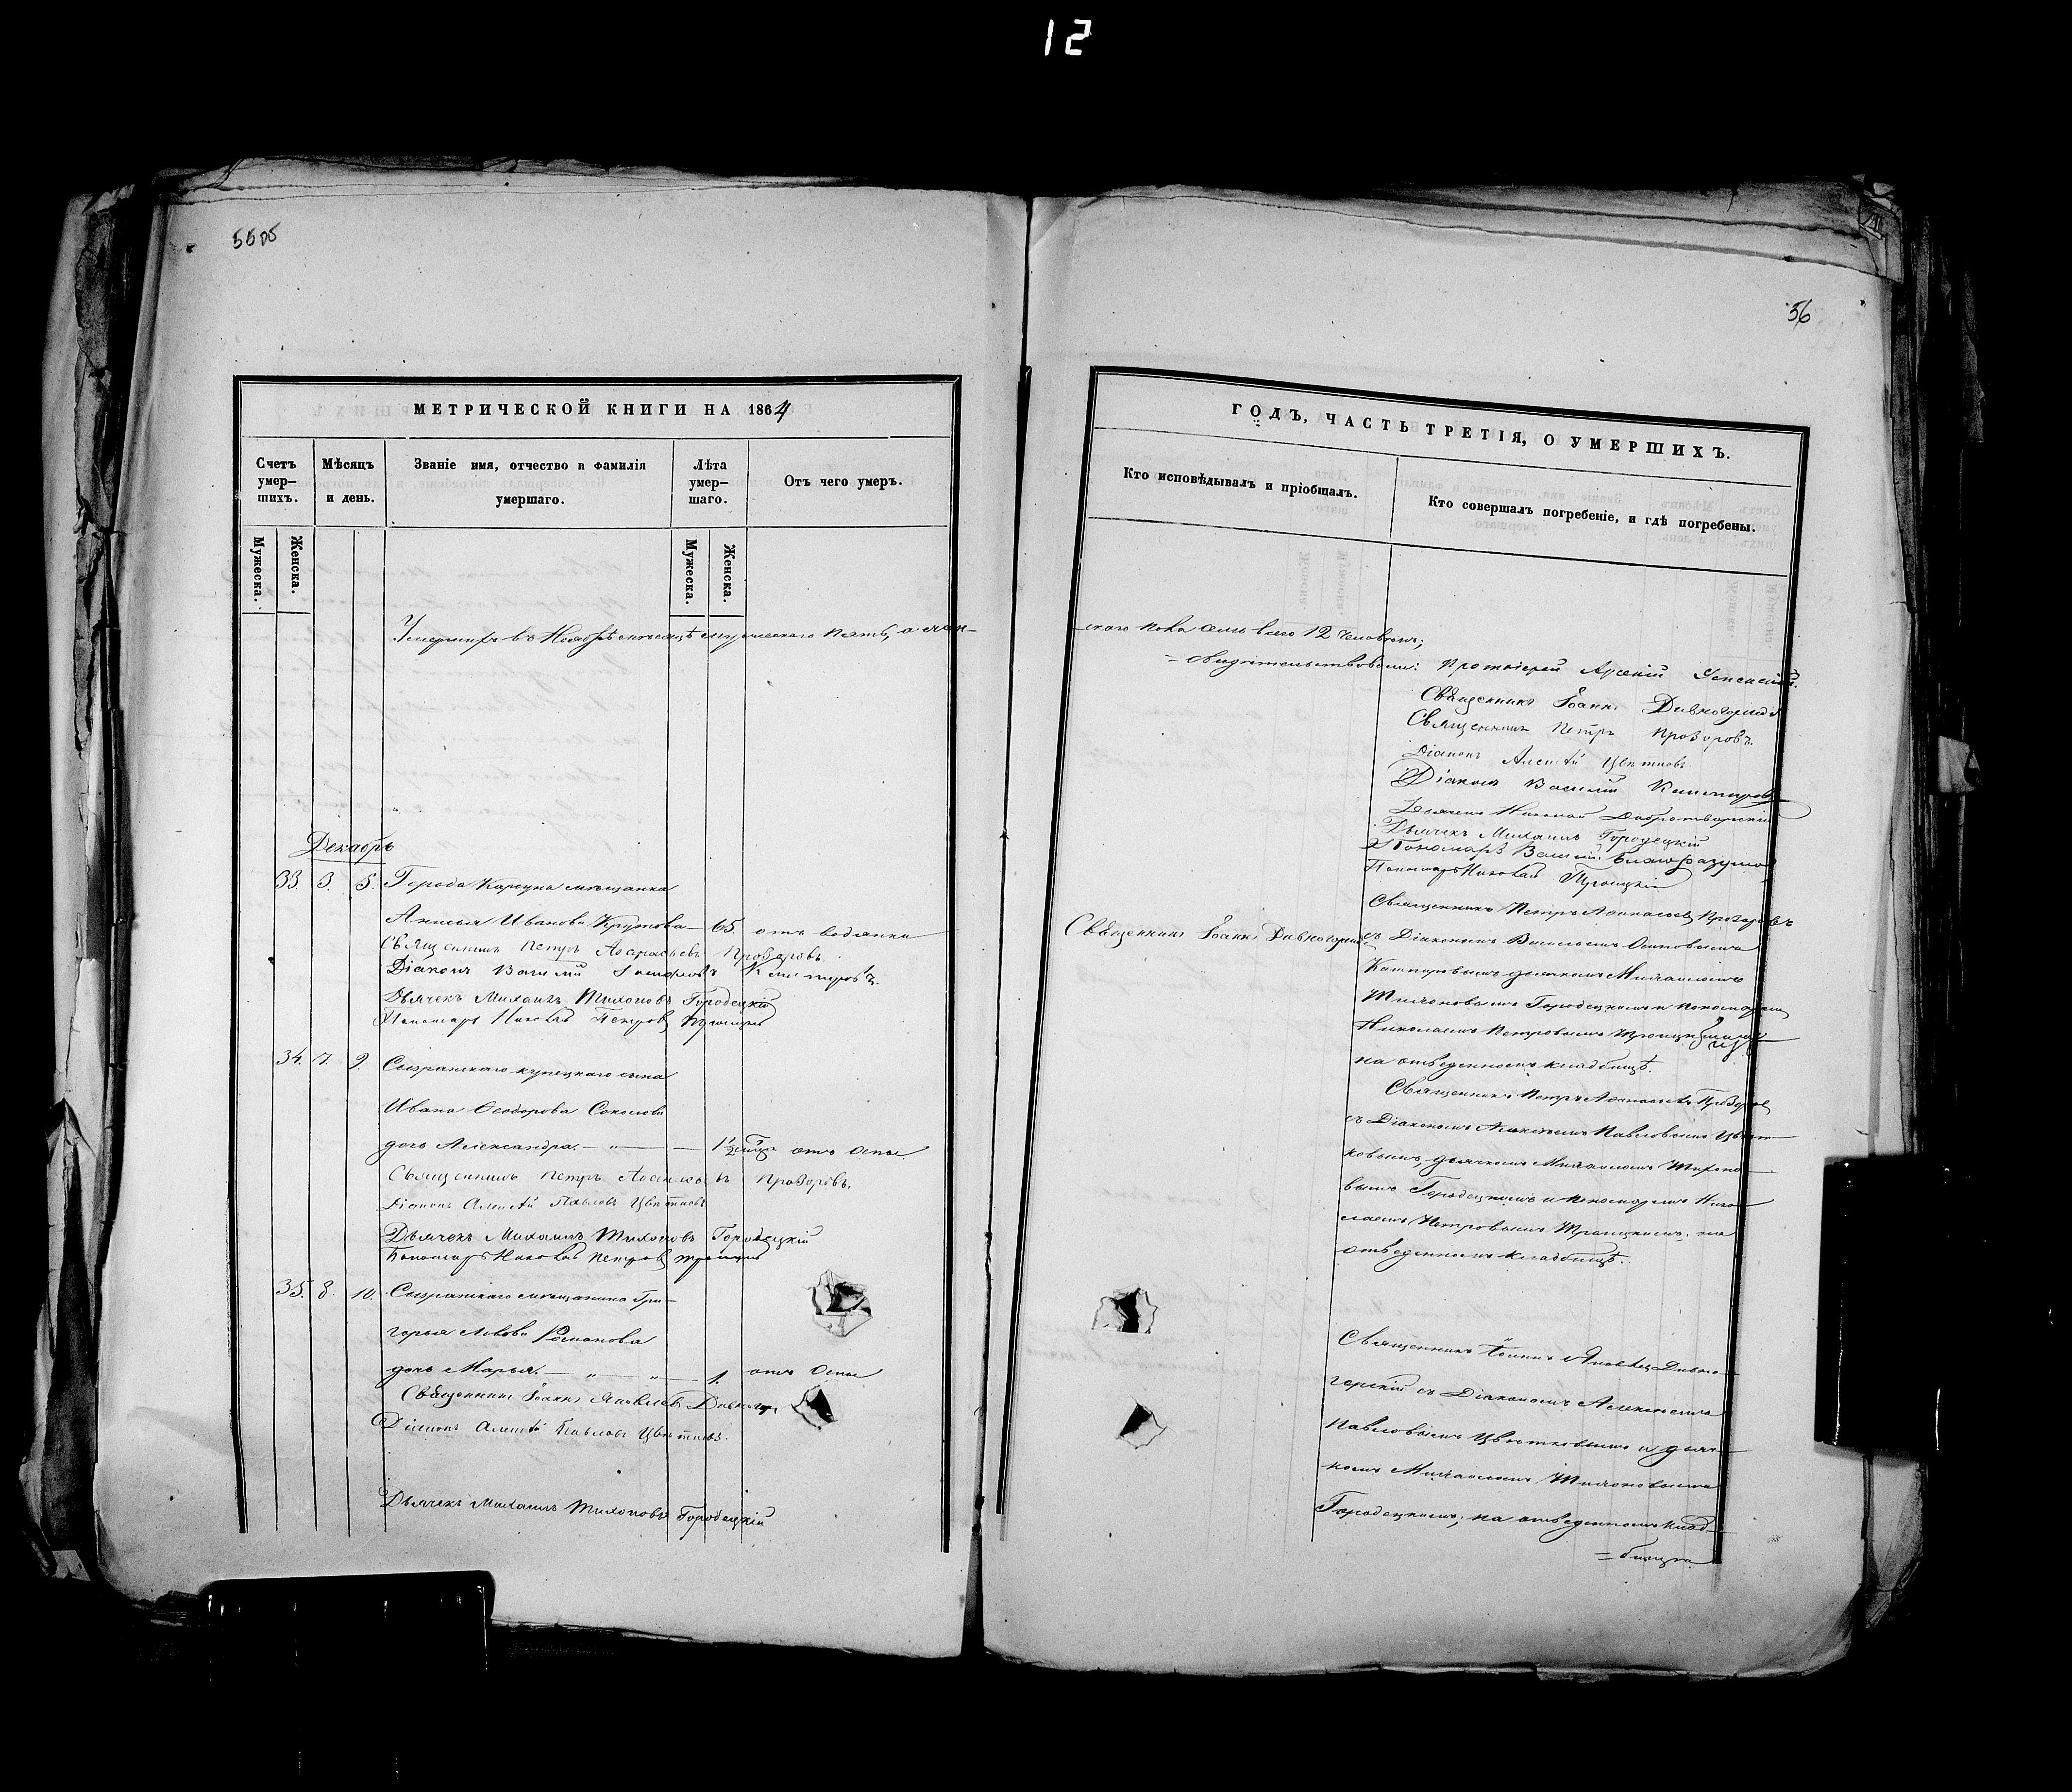 12
55об
56
МЕТРИЧЕСКОЙ КНИГИ НА 1864
Счетъ умер-шихъ.
Мѣсяцъ и день.
Званіе имя, отчество и фамилія умершаго.
Лѣта умер-шаго.
Отъ чего умеръ.
Мужеска.
Женска.
Мужеска.
Женска.
Умершихъ въ Ноябрѣ мѣсяцѣ мужескаго пять, а жен-
Декабрь
33. 3. 5. Города Карсуна мѣщанка
Анисья Иванова Крутова 65 отъ водянки
Священникъ Петръ Аѳанасьевъ Прозоровъ.
Діаконъ Василій
Дьячекъ Михаилъ Тихоновъ Городецкій
Пономарь Николай Петровъ Троицкій
34. 7. 9. Сызранскаго купецкаго сына
Ивана Ѳеодорова Соколова
дочь Александра. — 1 1/2 отъ Оспы.
Священникъ Петръ Аѳанасьевъ Прозоровъ.
Діаконъ Алексѣй Павловъ Цвѣтковъ
Дьячекъ Михаилъ Тихоновъ Городецкій
Пономарь Николай Петровъ Троицкій
35. 8. 10. Сызранскаго мѣщанина Гри-
горья Львова Романова
дочь Марья. — „ — „ — 1. отъ Оспы
Священникъ Іоаннъ Яковлевъ Дивногор
Діаконъ Алексѣй Павловъ Цвѣтковъ.
Дьячекъ Михаилъ Тихоновъ Городецкій
ГОДЪ, ЧАСТЬ ТРЕТІЯ, О УМЕРШИХЪ.
Кто исповѣдывалъ и пріобщалъ.
Кто совершалъ погребеніе, и гдѣ погребены.
скаго пола семь всего 12 человѣкъ;
= свидѣтельствовали: Протоіерей Арсеній Успенскій.
Священникъ Іоаннъ Дивногорскій
Священникъ Петръ Прозоровъ.
Діаконъ Алексѣй Цвѣтковъ
Діаконъ Василій
Дьячекъ Николай Добротворскій
Дьячекъ Михаилъ Городецкій
Пономарь Василій Благоразумов
Пономарь Николай Троицкій
Священникъ Петръ Аѳанасьевъ Прозоровъ
Священникъ Іоаннъ Дивногорскій
съ Діакономъ Васильемъ Осиповымъ
дьячкомъ Михаиломъ
Тихоновымъ Городецкимъ и пономаремъ
Николаемъ Петровымъ Троицкимъ
на отведенномъ кладбищѣ.
Священникъ Петръ Аѳанасьевъ Прозоров
съ Діакономъ Алексѣемъ Павловымъ Цвѣт-
ковымъ, дьячкомъ Михаиломъ Тихоно-
вымъ Городецкимъ и пономаремъ Нико-
лаемъ Петровымъ Троицкимъ; на
отведенномъ кладбищѣ.
Священникъ Іоаннъ Яковлевъ Дивно-
горскій съ Діакономъ Алексѣемъ
Павловымъ Цвѣтковымъ и дьяч-
комъ Михаиломъ Тихоновымъ
Городецкимъ; на отведенномъ клад-
= бищѣ